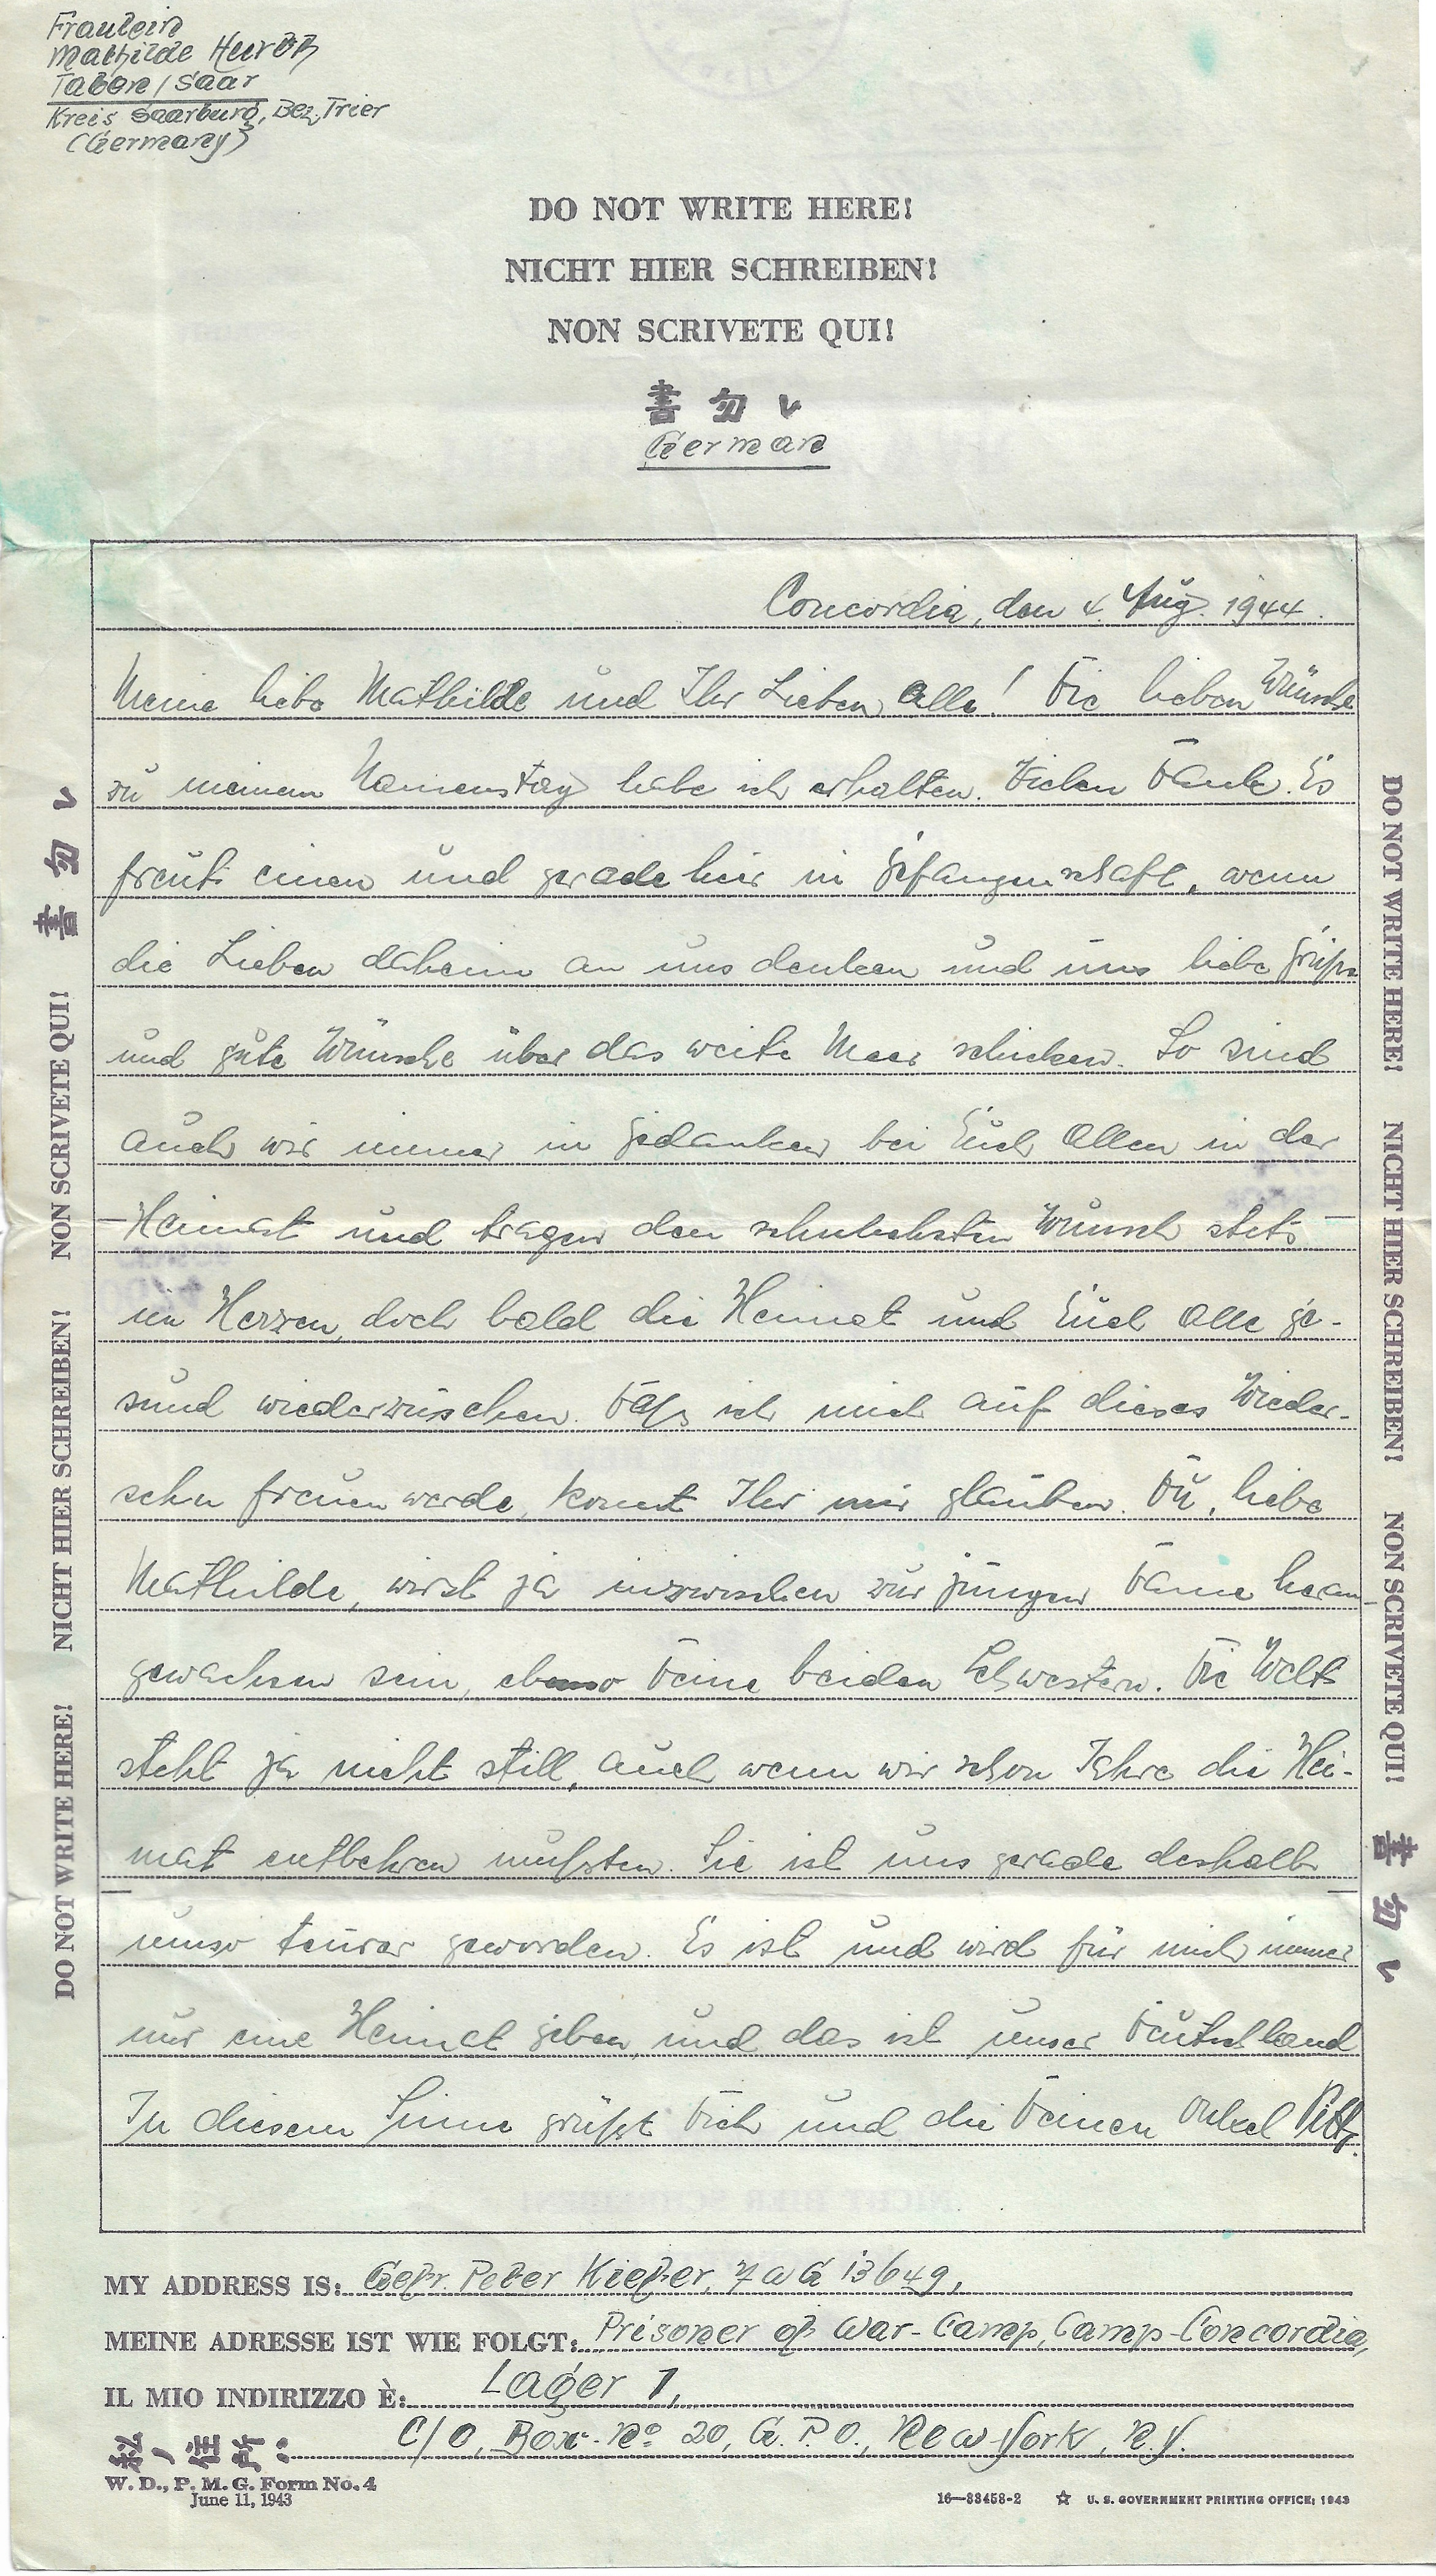 Fraulein
Mathilde Hurth
Taben / Saar
Kreis Saarburg, Bez. Trier
(Germany)
DO NOT WRITE HERE!
NICHT HIER SCHREIBEN!
NON SCRIVETE QUI!
書勿レ
German
Concordia, den 4. Aug. 1944.
Meine liebe Mathilde und Ihr Lieben alle! Die lieben Wünsche
zu meinem Namenstag habe ich erhalten. Vielen Dank. Es
freut einen und gerade hier in Gefangenschaft, wenn
die Lieben daheim an uns denken und uns liebe Grüße
und gute Wünsche über das weite Meer schicken. So sind
auch wir immer in Gedanken bei Euch Allen in der
Heimat und tragen den sehnlichsten Wunsch stets
im Herzen, doch bald die Heimat und Euch Alle ge-
sund wiederzusehen. Daß ich mich auf dieses Wieder-
sehn freuen werde, könnt Ihr mir glauben. Du, liebe
Mathilde, wirst ja inzwischen zur jungen Dame heran
gewachsen sein, ebenso Deine beiden Schwestern. Die Welt
steht ja nicht still, auch wenn wir schon Jahre die Hei-
mat entbehren mußten. Sie ist uns gerade deshalb
umso teurer geworden. Es ist und wird für mich immer
nur eine Heimat geben, und das ist unser Deutschland
In diesem Sinne grüßt Dich und die Deinen Onkel Pitt.
MY ADDRESS IS: Gefr. Peter Kiefer, 7 W G 13649,
MEINE ADRESSE IST WIE FOLGT: Prisoner of War-Camp, Camp-Concordia,
IL MIO INDIRIZZO È: Lager 1,
私ノ住所: C/O, Box-No 20, G. P. O., New York, N.Y.
W. D., P. M. G. Form No. 4
June 11, 1943
16—33458-2 ☆ U. S. GOVERNMENT PRINTING OFFICE: 1943
DO NOT WRITE HERE! NICHT HIER SCHREIBEN! NON SCRIVETE QUI! 書勿レ
DO NOT WRITE HERE! NICHT HIER SCHREIBEN! NON SCRIVETE QUI! 書勿レ